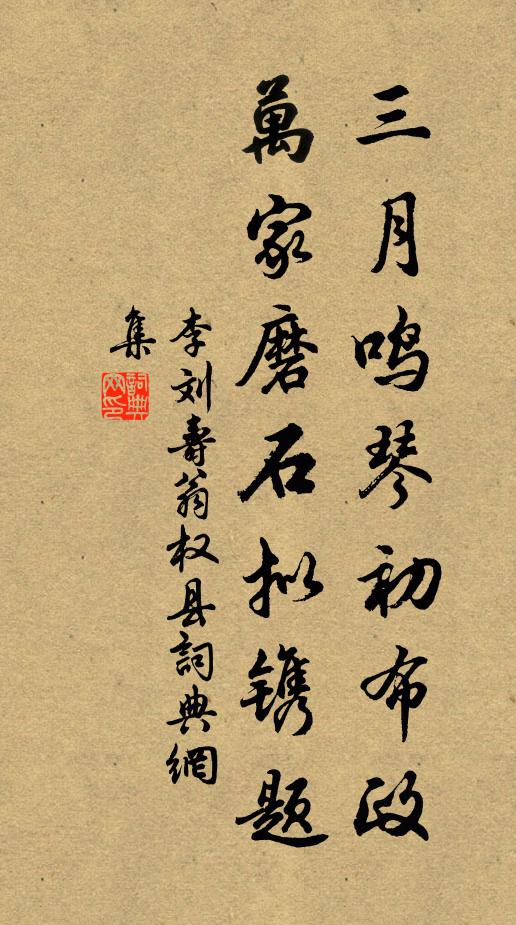 三月鸣琴初布政
萬家磨石拟镌题
李刘寿翁权县詞典網
集
詞典